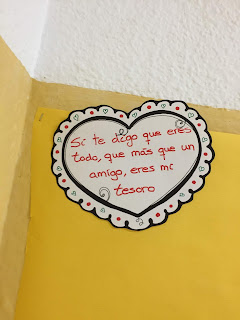 Si te digo que eres
todo, que más que un
amigo, eres mi
tesoro